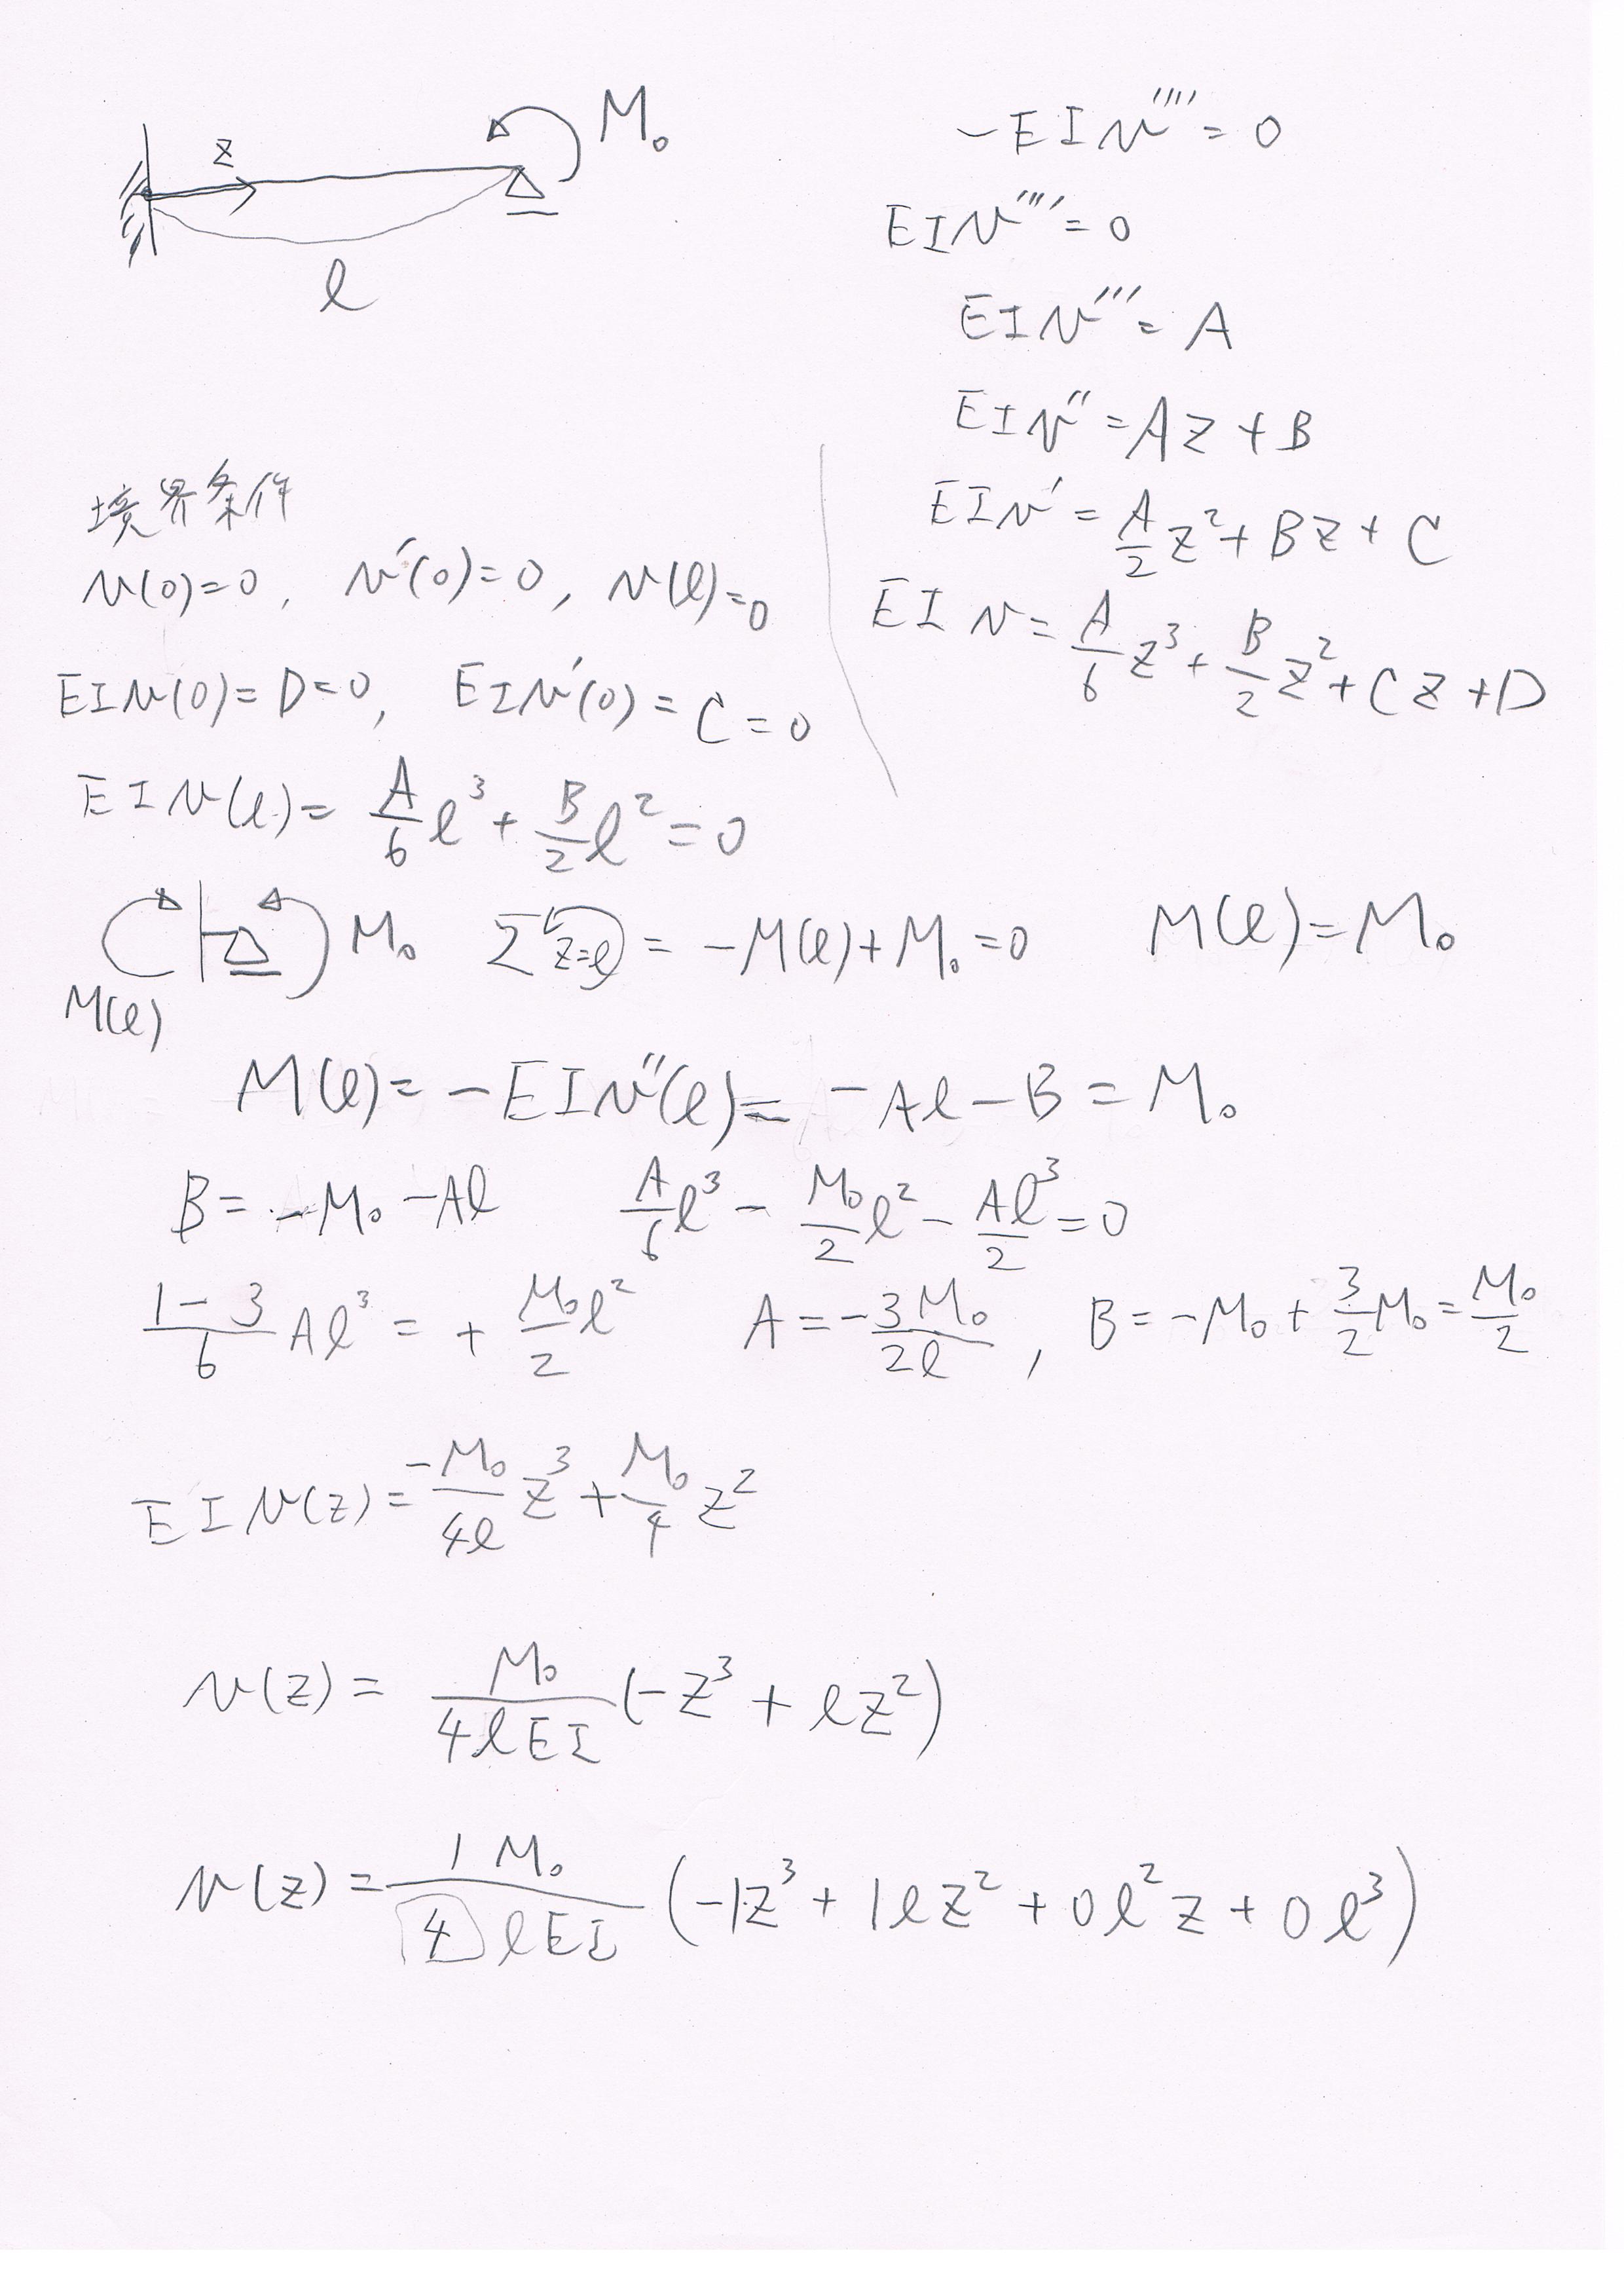 z M₀
l
-EIv'''' = 0
EIv'''' = 0
EIv''' = A
EIv'' = Az + B
EIv' = A/2 z² + Bz + C
EIv = A/6 z³ + B/2 z² + Cz + D
境界条件
v(0)=0, v'(0)=0, v(l)=0
EIv(0)=D=0, EIv'(0)=C=0
EIv(l)= A/6 l³ + B/2 l² = 0
M(l) M₀ Σ z=l = -M(l)+M₀=0 M(l)=M₀
M(l)= -EIv''(l)= -Al-B = M₀
B= -M₀-Al A/6 l³ - M₀/2 l² - Al³/2 = 0
1-3/6 Al³ = + M₀/2 l² A=-3M₀/2l, B=-M₀+3/2 M₀=M₀/2
EIv(z)= -M₀/4l z³ + M₀/4 z²
v(z)= M₀/4lEI (-z³+lz²)
v(z)= 1M₀/4lEI (-1z³+1lz²+0l²z+0l³)